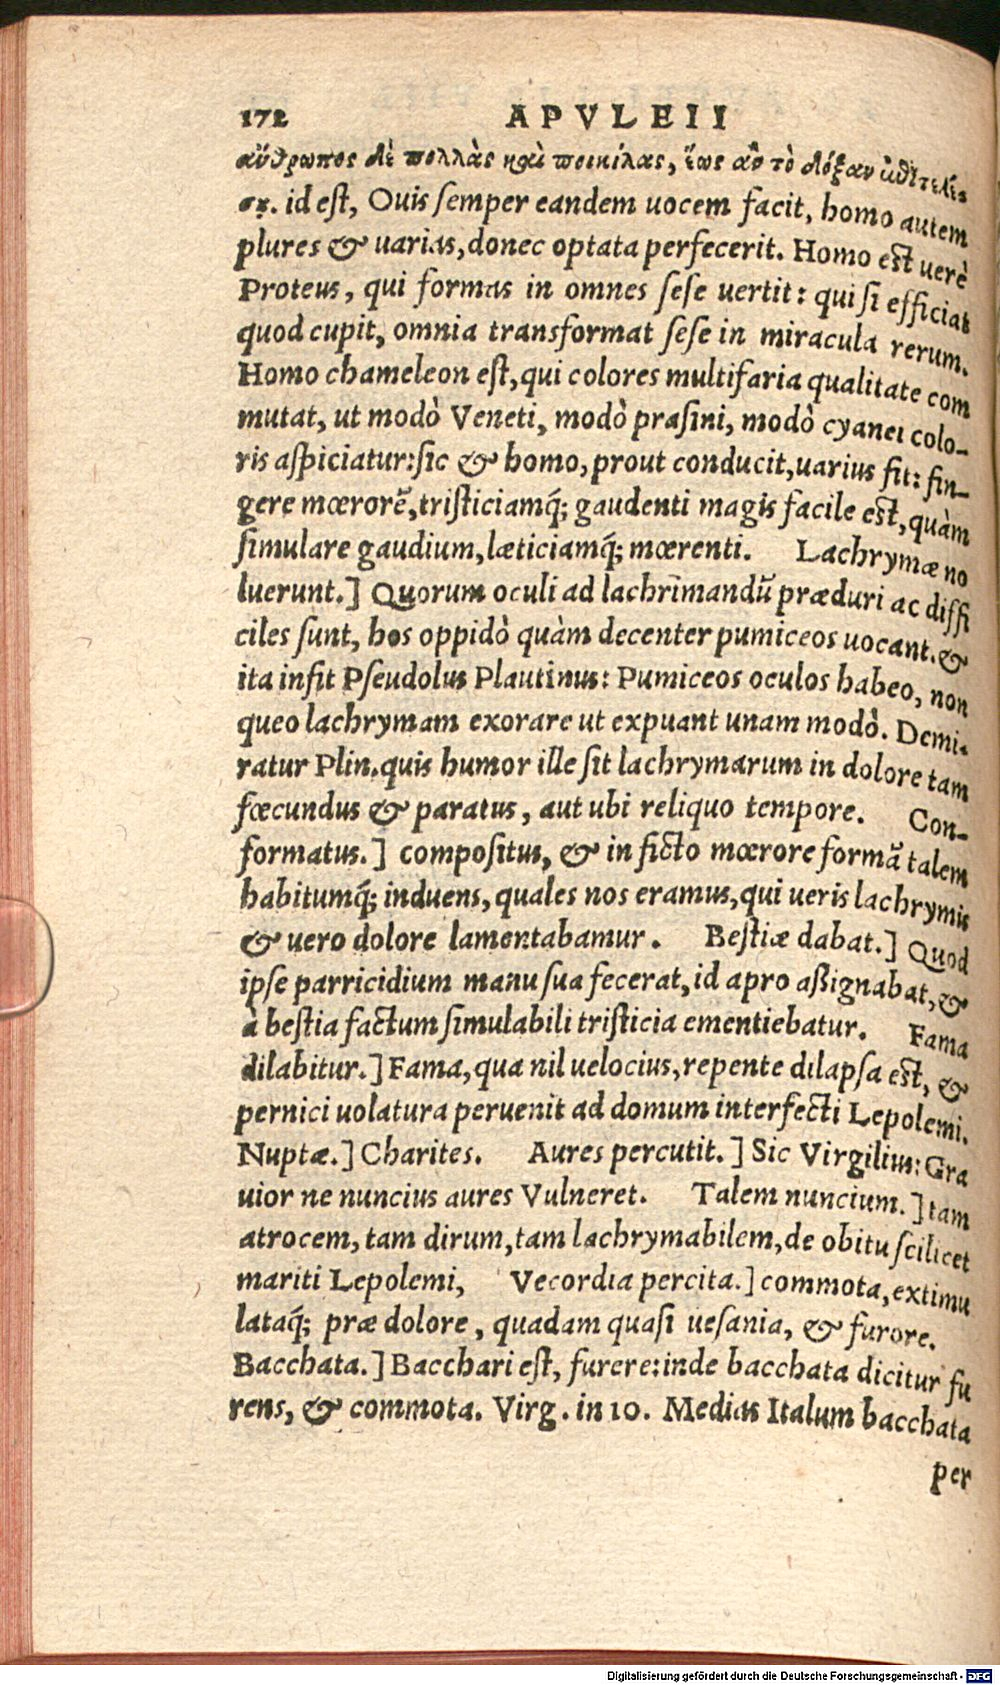 172 APVLEII
ἄνθρωπος δὲ πολλὰς καὶ ποικίλας, ἕως ἂν τὸ δόξαν
ση. id est, Ouis semper eandem uocem facit, homo autem
plures & uarias, donec optata perfecerit. Homo est uerè
Proteus, qui formas in omnes sese uertit: qui si efficiat
quod cupit, omnia transformat sese in miracula rerum.
Homo chameleon est, qui colores multifaria qualitate com
mutat, ut modò Veneti, modò prasini, modò cyanei colo-
ris aspiciatur: sic & homo, prout conducit, uarius fit: fin-
gere mœrorẽ, tristiciamq́; gaudenti magis facile est, quàm
simulare gaudium, læticiamq́; mœrenti. Lachrymæ no
luerunt.] Quorum oculi ad lachrimandũ præduri ac diffi
ciles sunt, hos oppidò quàm decenter pumiceos uocant. &
ita infit Pseudolus Plautinus: Pumiceos oculos habeo, non
queo lachrymam exorare ut expuant unam modò. Demi-
ratur Plin. quis humor ille sit lachrymarum in dolore tam
fœcundus & paratus, aut ubi reliquo tempore. Con-
formatus.] compositus, & in ficto mœrore formã talem
habitumq́; induens, quales nos eramus, qui ueris lachrymis
& uero dolore lamentabamur. Bestiæ dabat.] Quod
ipse parricidium manu sua fecerat, id apro assignabat, &
à bestia factum simulabili tristicia ementiebatur. Fama
dilabitur.] Fama, qua nil uelocius, repente dilapsa est, &
pernici uolatura peruenit ad domum interfecti Lepolemi.
Nuptæ.] Charites. Aures percutit.] Sic Virgilius: Gra
uior ne nuncius aures Vulneret. Talem nuncium.] tam
atrocem, tam dirum, tam lachrymabilem, de obitu scilicet
mariti Lepolemi, Vecordia percita.] commota, extimu
lataq́; præ dolore, quadam quasi uesania, & furore.
Bacchata.] Bacchari est, furere: inde bacchata dicitur fu
rens, & commota. Virg. in 10. Medias Italum bacchata
per
Digitalisierung gefördert durch die Deutsche Forschungsgemeinschaft - DFG